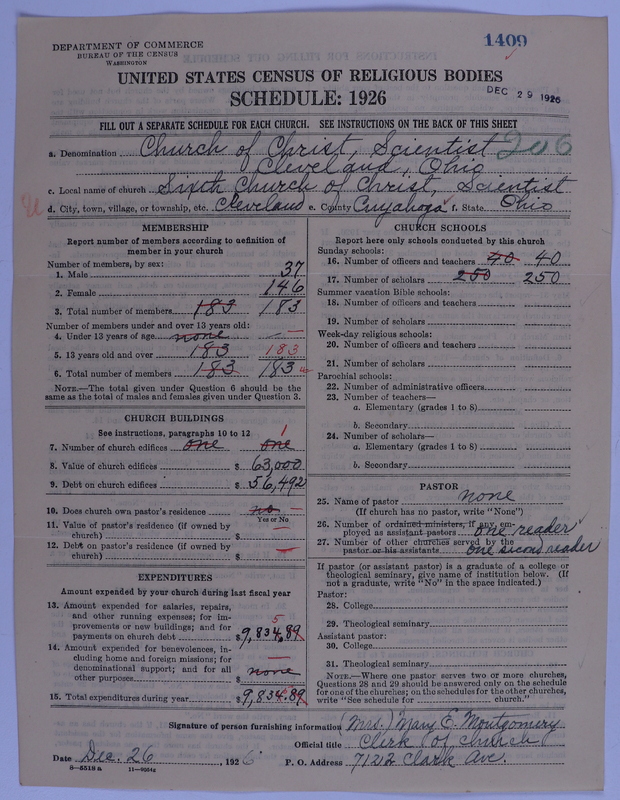 1409
DEPARTMENT OF COMMERCE
BUREAU OF THE CENSUS
WASHINGTON
UNITED STATES CENSUS OF RELIGIOUS BODIES
SCHEDULE: 1926
DEC 29 1926
FILL OUT A SEPARATE SCHEDULE FOR EACH CHURCH. SEE INSTRUCTIONS ON THE BACK OF THIS SHEET
a. Denomination Church of Christ, Scientist 206
Cleveland, Ohio
c. Local name of church Sixth Church of Christ, Scientist
d. City, town, village, or township, etc. Cleveland e. County Cuyahoga f. State Ohio
MEMBERSHIP
Report number of members according to definition of
member in your church
Number of members, by sex:
1. Male 37
2. Female 146
3. Total number of members 183 183
Number of members under and over 13 years old:
4. Under 13 years of age none —
5. 13 years old and over 183 183
6. Total number of members 183 183
NOTE.—The total given under Question 6 should be the
same as the total of males and females given under Question 3.
CHURCH BUILDINGS
See instructions, paragraphs 10 to 12
7. Number of church edifices one one 1
8. Value of church edifices $ 63,000
9. Debt on church edifices $ 56,492
10. Does church own pastor's residence no —
Yes or No
11. Value of pastor's residence (if owned by
church) $ —
12. Debt on pastor's residence (if owned by
church) $ —
EXPENDITURES
Amount expended by your church during last fiscal year
13. Amount expended for salaries, repairs,
and other running expenses; for im-
provements or new buildings; and for
payments on church debt $ 9,834.89 5
14. Amount expended for benevolences, in-
cluding home and foreign missions; for
denominational support; and for all
other purposes none —
15. Total expenditures during year $ 9,834.89
CHURCH SCHOOLS
Report here only schools conducted by this church
Sunday schools:
16. Number of officers and teachers 40 40
17. Number of scholars 250 250
Summer vacation Bible schools:
18. Number of officers and teachers
19. Number of scholars
Week-day religious schools:
20. Number of officers and teachers
21. Number of scholars
Parochial schools:
22. Number of administrative officers
23. Number of teachers—
a. Elementary (grades 1 to 8)
b. Secondary
24. Number of scholars—
a. Elementary (grades 1 to 8)
b. Secondary
PASTOR
25. Name of pastor none
(If church has no pastor, write "None")
26. Number of ordained ministers, if any, em-
ployed as assistant pastors one reader
27. Number of other churches served by the
pastor or his assistants one second reader
If pastor (or assistant pastor) is a graduate of a college or
theological seminary, give name of institution below. (If
not a graduate, write "No" in the space indicated.)
Pastor:
28. College
29. Theological seminary
Assistant pastor:
30. College
31. Theological seminary
NOTE.—Where one pastor serves two or more churches,
Questions 28 and 29 should be answered only on the schedule
for one of the churches; on the schedules for the other churches,
write "See schedule for church."
Signature of person furnishing information (Mrs.) Mary E. Montgomery
Official title Clerk of Church
Date Dec. 26, 1926 P. O. Address 7122 Clark Ave.
8—5518 a 11—9064